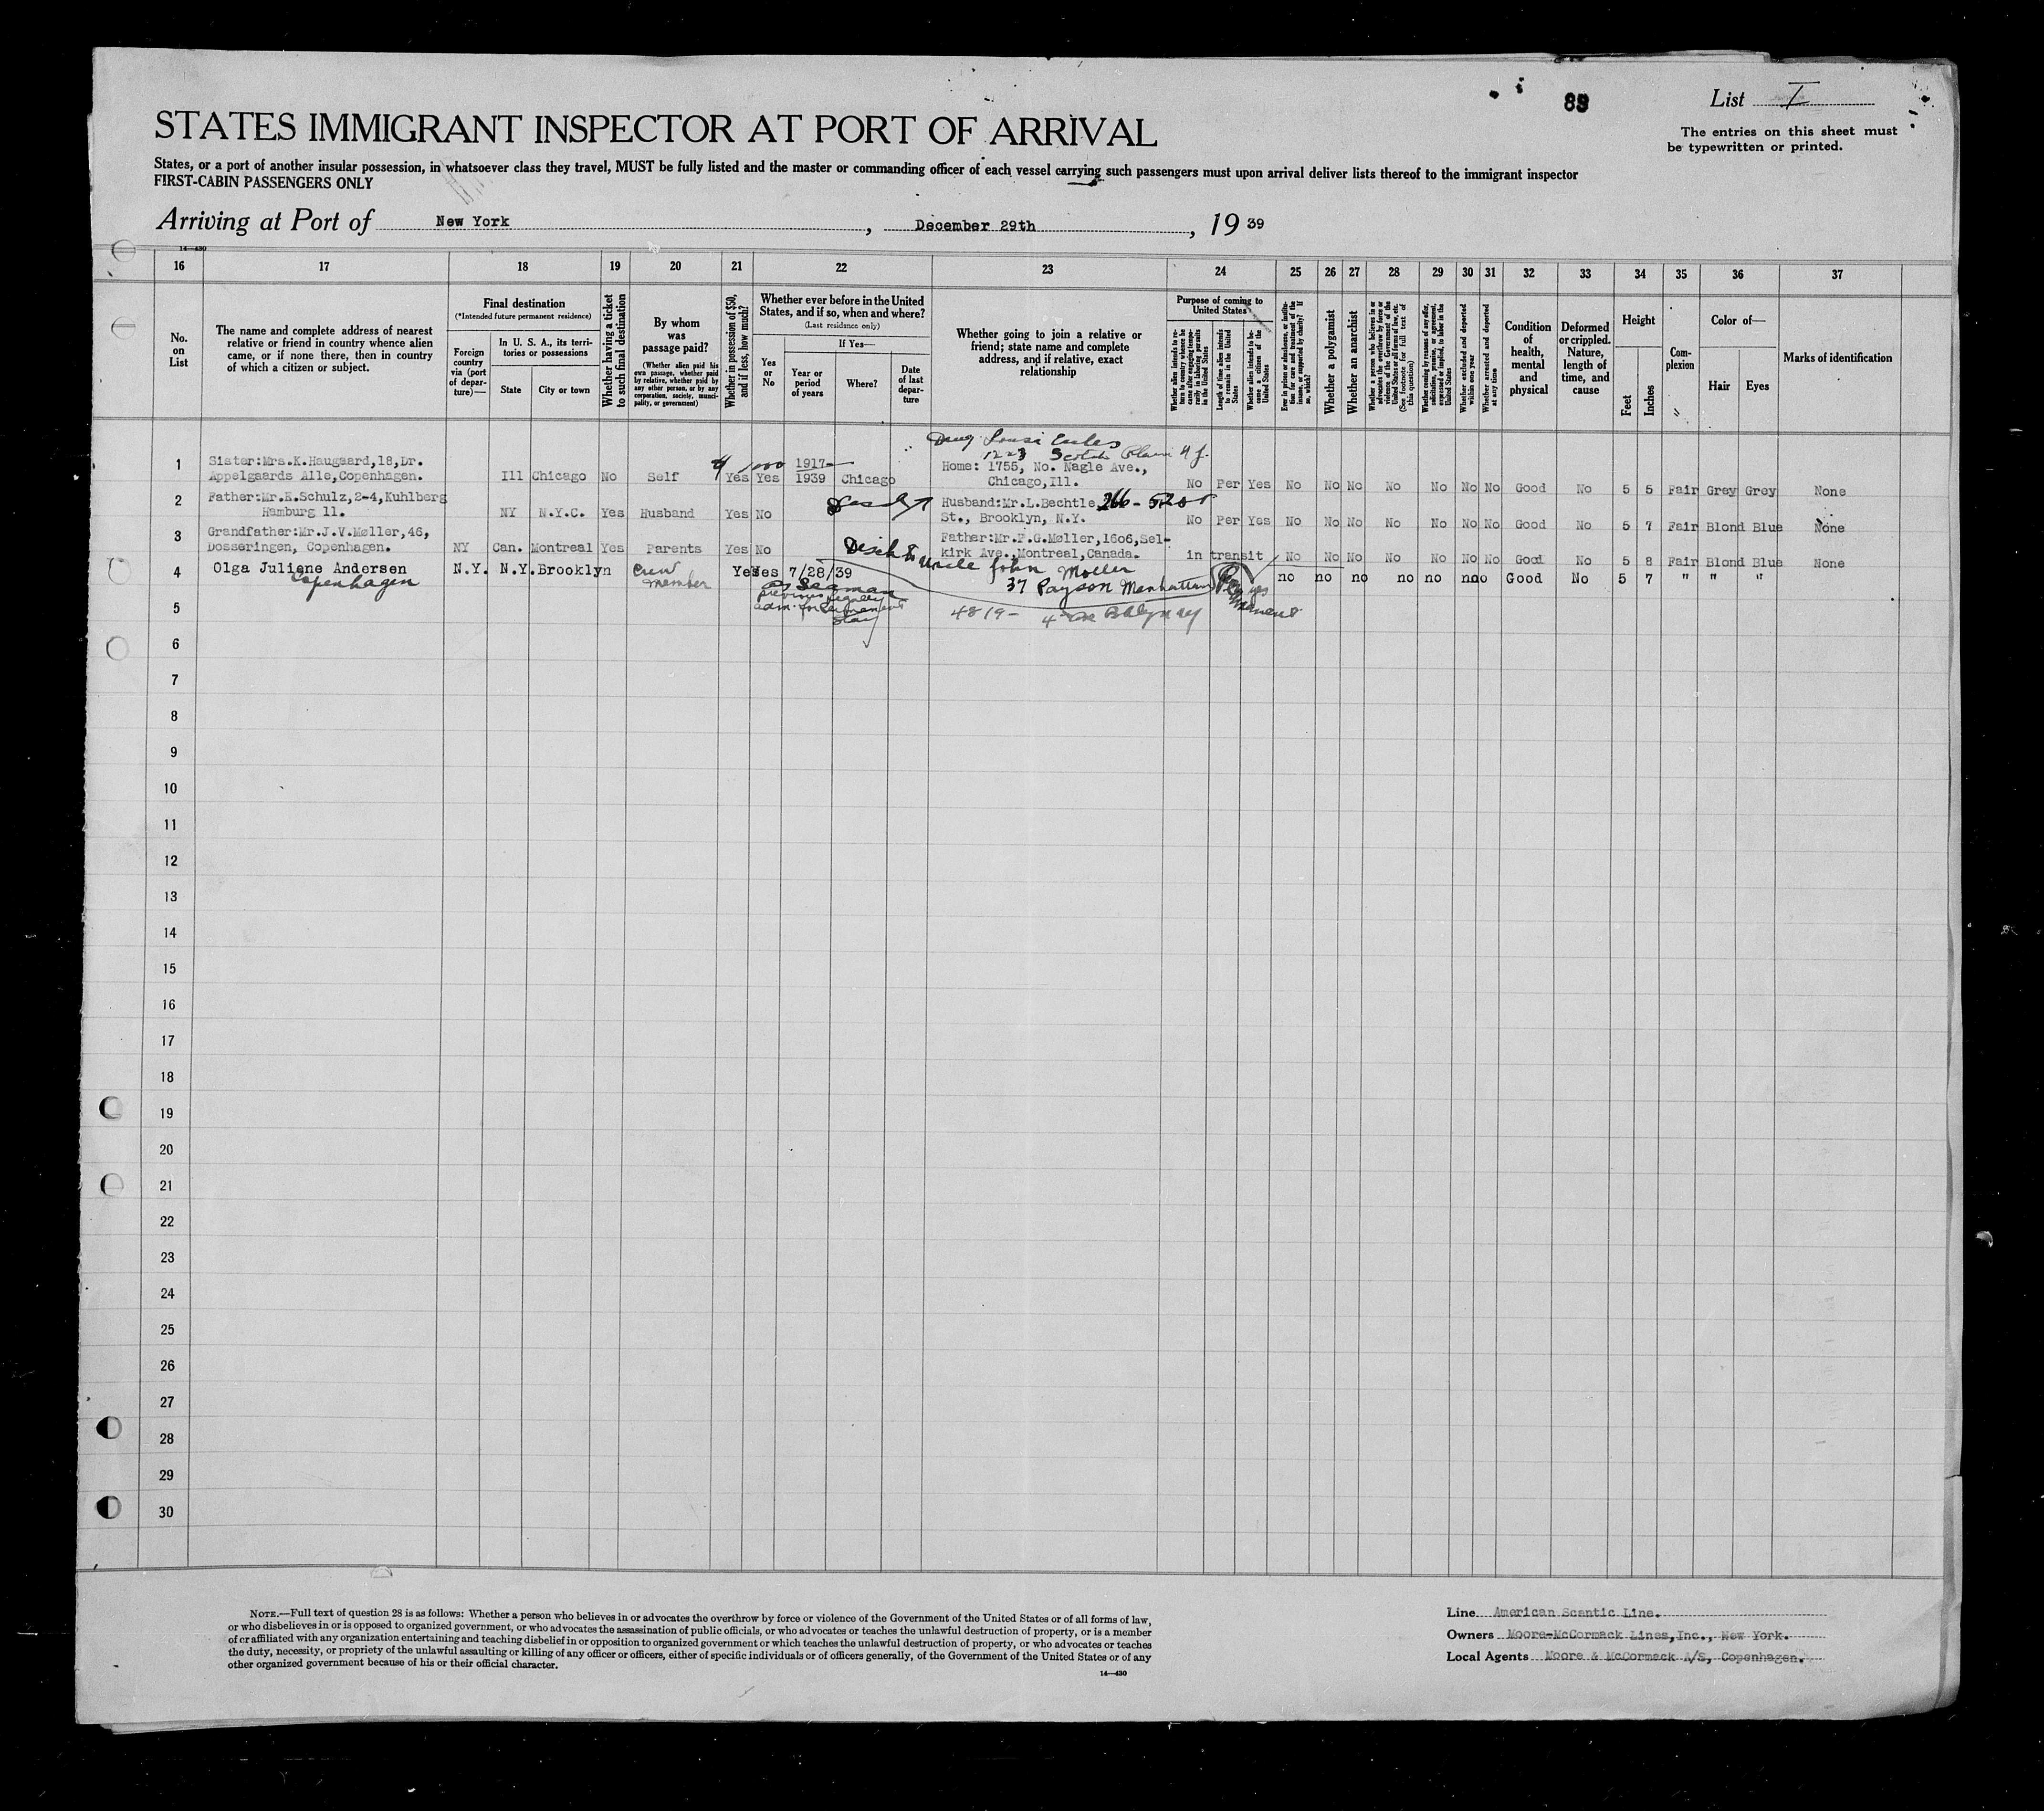 89
List I
The entries on this sheet must
be typewritten or printed.
STATES IMMIGRANT INSPECTOR AT PORT OF ARRIVAL
States, or a port of another insular possession, in whatsoever class they travel, MUST be fully listed and the master or commanding officer of each vessel carrying such passengers must upon arrival deliver lists thereof to the immigrant inspector
FIRST-CABIN PASSENGERS ONLY
Arriving at Port of New York, December 29th, 19 39
14—430
16 17 18 19 20 21 22 23 24 25 26 27 28 29 30 31 32 33 34 35 36 37
No.
on
List
The name and complete address of nearest
relative or friend in country whence alien
came, or if none there, then in country
of which a citizen or subject.
Final destination
(*Intended future permanent residence)
Foreign
country
via (port
of depar-
ture)—
In U. S. A., its terri-
tories or possessions
State
City or town
Whether having a ticket
to such final destination
By whom
was
passage paid?
(Whether alien paid his
own passage, whether paid
by relative, whether paid by
any other person, or by any
corporation, society, munici-
pality, or government)
Whether in possession of $50,
and if less, how much?
Whether ever before in the United
States, and if so, when and where?
(Last residence only)
Yes
or
No
If Yes—
Year or
period
of years
Where?
Date
of last
depar-
ture
Whether going to join a relative or
friend; state name and complete
address, and if relative, exact
relationship
Purpose of coming to
United States
Whether alien intends to re-
turn to country whence he
came after engaging tempo-
rarily in laboring pursuits
in the United States
Length of time alien intends
to remain in the United
States
Whether alien intends to be-
come a citizen of the
United States
Ever in prison or almshouse, or institu-
tion for care and treatment of the
insane, or supported by charity? If
so, which?
Whether a polygamist
Whether an anarchist
Whether a person who believes in or
advocates the overthrow by force or
violence of the Government of the
United States or all forms of law, etc.
(See footnote for full text of
this question)
Whether coming by reasons of any offer,
solicitation, promise, or agreement,
expressed or implied, to labor in the
United States
Whether excluded and deported
within one year
Whether arrested and deported
at any time
Condition
of
health,
mental
and
physical
Deformed
or crippled.
Nature,
length of
time, and
cause
Height
Feet
Inches
Com-
plexion
Color of—
Hair
Eyes
Marks of identification
1 Sister:Mrs.K.Haugaard,18,Dr.
Appelgaards Alle,Copenhagen. Ill Chicago No Self Yes Yes 1917-
1939 Chicago
Home: 1755, No. Nagle Ave.,
Chicago,Ill. No Per Yes No No No No No No No Good No 5 5 Fair Grey Grey None
2 Father:Mr.K.Schulz,2-4,Kuhlberg
Hamburg 11. NY N.Y.C. Yes Husband Yes No
Husband:Mr.L.Bechtle 266 -
St., Brooklyn, N.Y. No Per Yes No No No No No No No Good No 5 7 Fair Blond Blue None
3 Grandfather:Mr.J.V.Møller,46,
Dosseringen, Copenhagen. NY Can. Montreal Yes Parents Yes No
Father:Mr.F.G.Møller,1606,Sel-
kirk Ave.,Montreal,Canada. in transit No No No No No No No Good No 5 8 Fair Blond Blue None
Disch to Uncle John Moller
37 Payson Manhattan
4 Olga Juliane Andersen
Copenhagen
N.Y. N.Y. Brooklyn Crew
member Yes Yes 7/28/39
as Seaman
previous legally
adm. for Permanent
stay
4819 - 4
Permanent yes
no no no no no no no Good No 5 7 " " "
5
6
7
8
9
10
11
12
13
14
15
16
17
18
19
20
21
22
23
24
25
26
27
28
29
30
NOTE.—Full text of question 28 is as follows: Whether a person who believes in or advocates the overthrow by force or violence of the Government of the United States or of all forms of law,
or who disbelieves in or is opposed to organized government, or who advocates the assassination of public officials, or who advocates or teaches the unlawful destruction of property, or is a member
of or affiliated with any organization entertaining and teaching disbelief in or opposition to organized government or which teaches the unlawful destruction of property, or who advocates or teaches
the duty, necessity, or propriety of the unlawful assaulting or killing of any officer or officers, either of specific individuals or of officers generally, of the Government of the United States or of any
other organized government because of his or their official character.
14—430
Line American Scantic Line.
Owners Moore-McCormack Lines,Inc., New York.
Local Agents Moore & McCormack A/S, Copenhagen.